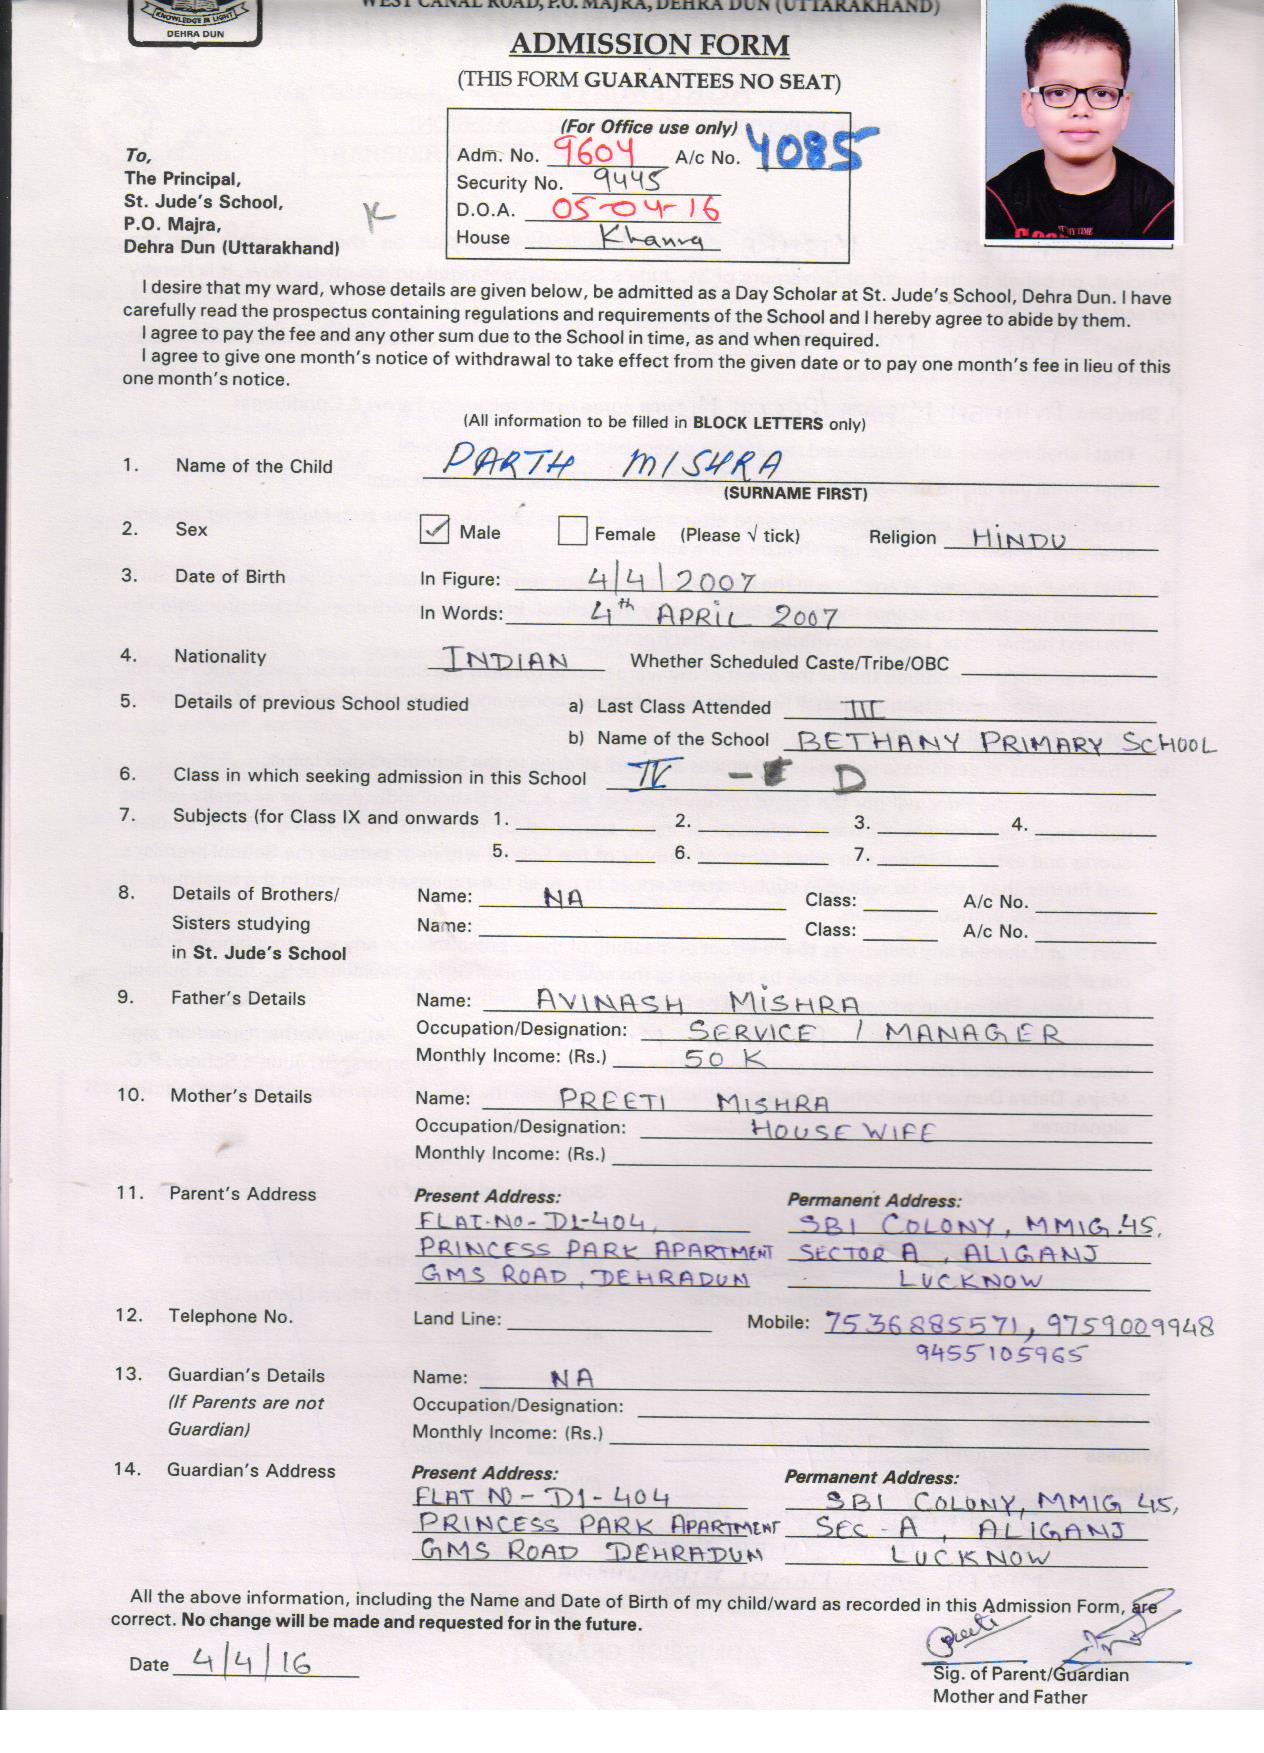 WEST CANAL ROAD, P.O. MAJRA, DEHRA DUN (UTTARAKHAND)
KNOWLEDGE IS LIGHT
DEHRA DUN
ADMISSION FORM
(THIS FORM GUARANTEES NO SEAT)
(For Office use only)
Adm. No. 9604 A/c No. 4085
Security No. 9445
D.O.A. 05-04-16
House Khanna
To,
The Principal,
St. Jude's School,
P.O. Majra,
Dehra Dun (Uttarakhand)
K
I desire that my ward, whose details are given below, be admitted as a Day Scholar at St. Jude's School, Dehra Dun. I have
carefully read the prospectus containing regulations and requirements of the School and I hereby agree to abide by them.
I agree to pay the fee and any other sum due to the School in time, as and when required.
I agree to give one month's notice of withdrawal to take effect from the given date or to pay one month's fee in lieu of this
one month's notice.
(All information to be filled in BLOCK LETTERS only)
1. Name of the Child PARTH MISHRA
(SURNAME FIRST)
2. Sex ✓ Male Female (Please √ tick) Religion HINDU
3. Date of Birth In Figure: 4/4/2007
In Words: 4th APRIL 2007
4. Nationality INDIAN Whether Scheduled Caste/Tribe/OBC
5. Details of previous School studied a) Last Class Attended III
b) Name of the School BETHANY PRIMARY SCHOOL
6. Class in which seeking admission in this School IV - D
7. Subjects (for Class IX and onwards 1. 2. 3. 4.
5. 6. 7.
8. Details of Brothers/ Name: NA Class: A/c No.
Sisters studying Name: Class: A/c No.
in St. Jude's School
9. Father's Details Name: AVINASH MISHRA
Occupation/Designation: SERVICE / MANAGER
Monthly Income: (Rs.) 50 K
10. Mother's Details Name: PREETI MISHRA
Occupation/Designation: HOUSE WIFE
Monthly Income: (Rs.)
11. Parent's Address Present Address: Permanent Address:
FLAT-NO-D1-404, SBI COLONY, MMIG.45,
PRINCESS PARK APARTMENT SECTOR A, ALIGANJ
GMS ROAD, DEHRADUN LUCKNOW
12. Telephone No. Land Line: Mobile: 7536885571, 9759009948
9455105965
13. Guardian's Details Name: NA
(If Parents are not Occupation/Designation:
Guardian) Monthly Income: (Rs.)
14. Guardian's Address Present Address: Permanent Address:
FLAT NO-D1-404 SBI COLONY, MMIG 45,
PRINCESS PARK APARTMENT SEC-A, ALIGANJ
GMS ROAD DEHRADUN LUCKNOW
All the above information, including the Name and Date of Birth of my child/ward as recorded in this Admission Form, are
correct. No change will be made and requested for in the future.
Preeti
Date 4/4/16
Sig. of Parent/Guardian
Mother and Father